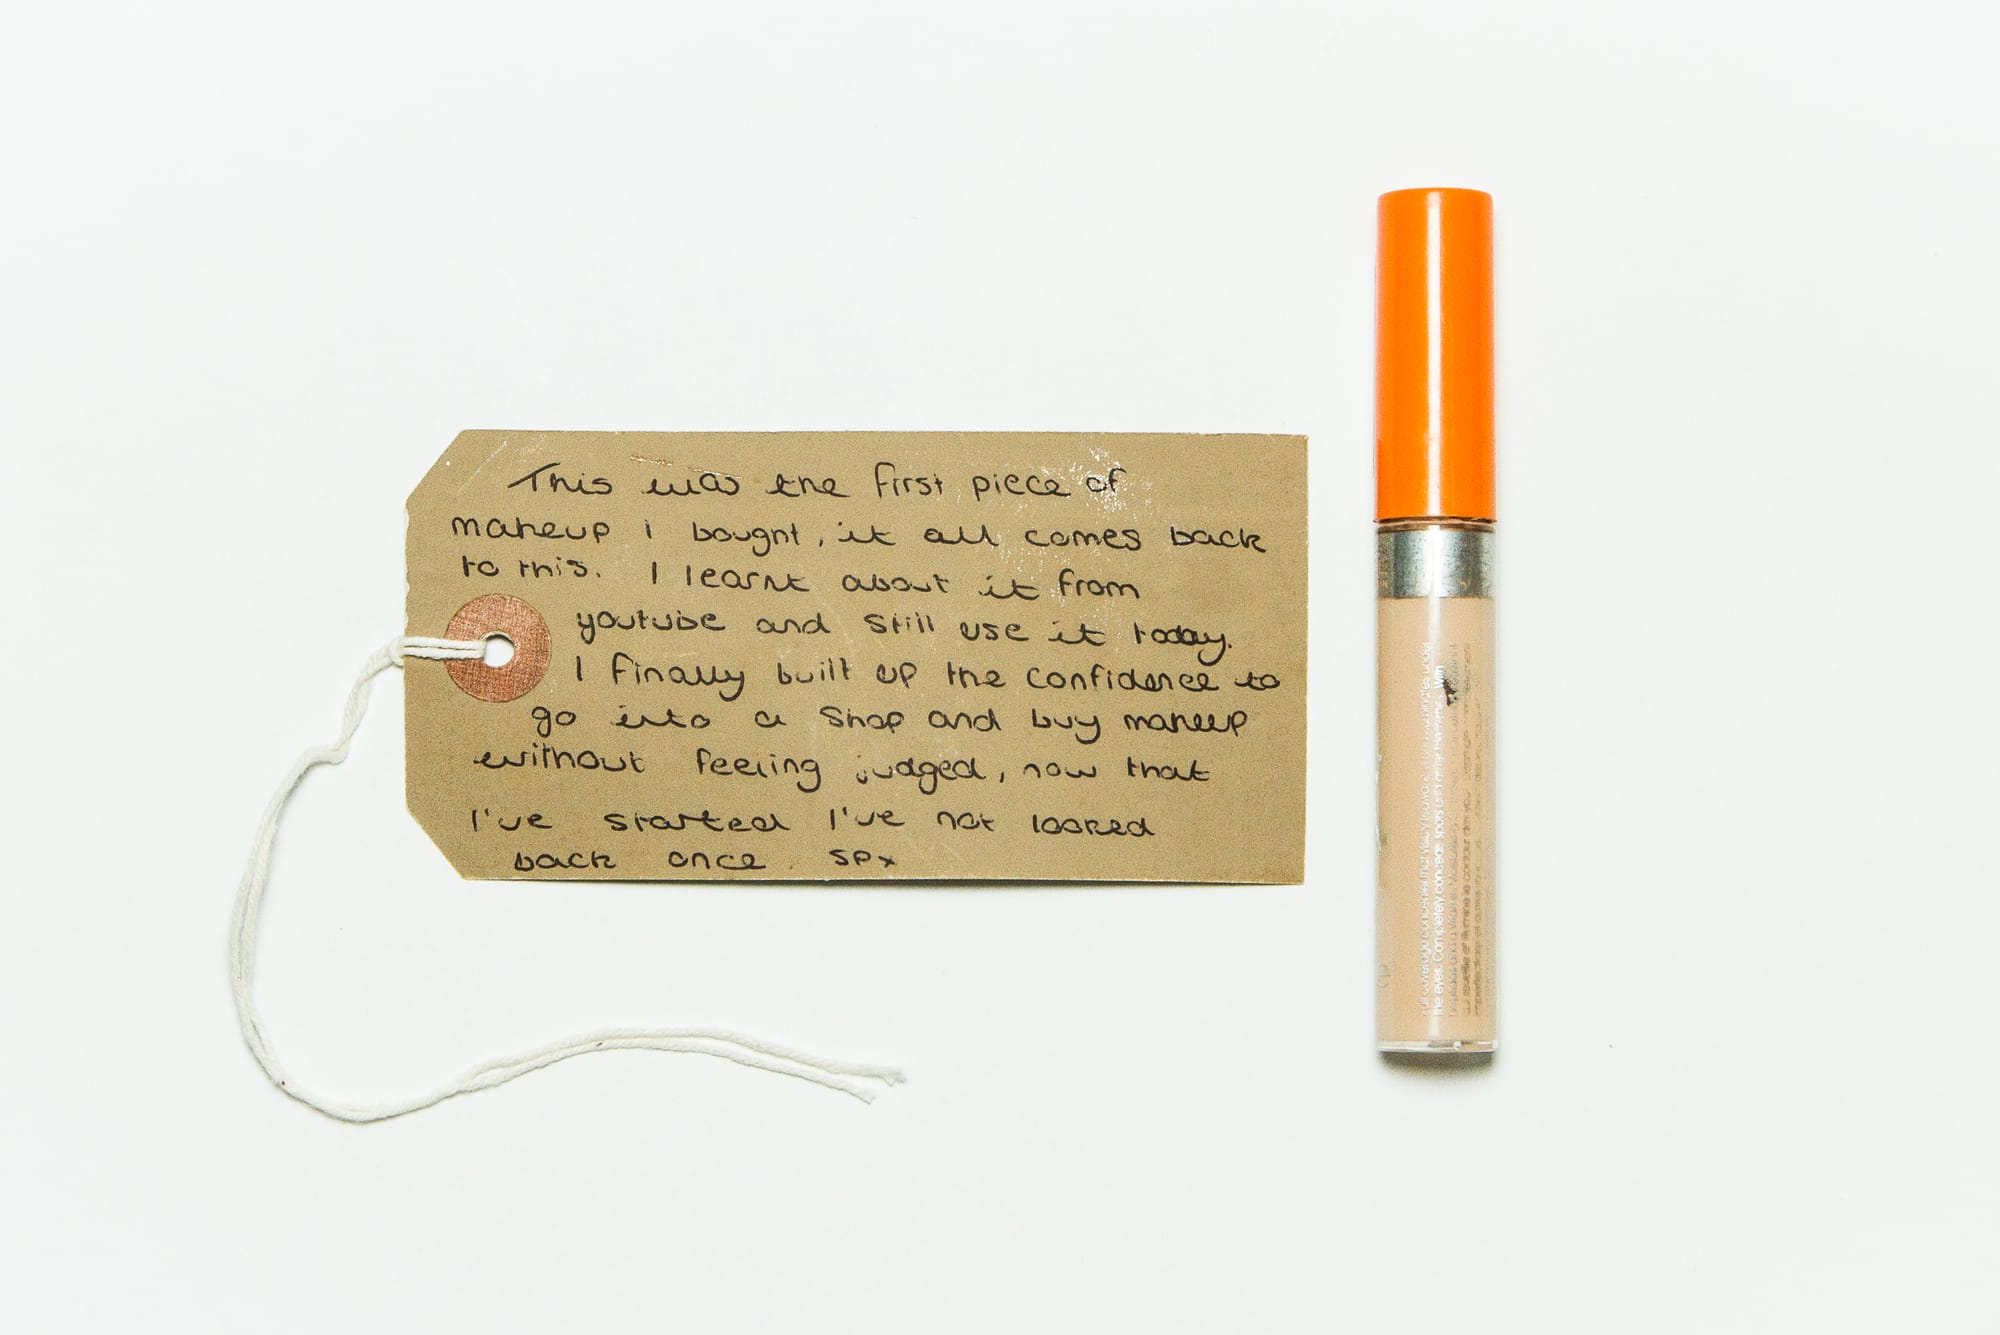 This was the first piece of
makeup i bought, it all comes back
to this. I learnt about it from
youtube and still use it today.
I finally built up the confidence to
go into a shop and buy makeup
without feeling judged, now that
I've started I've not looked
back once. SPx
the eyes. Completely conceals spots